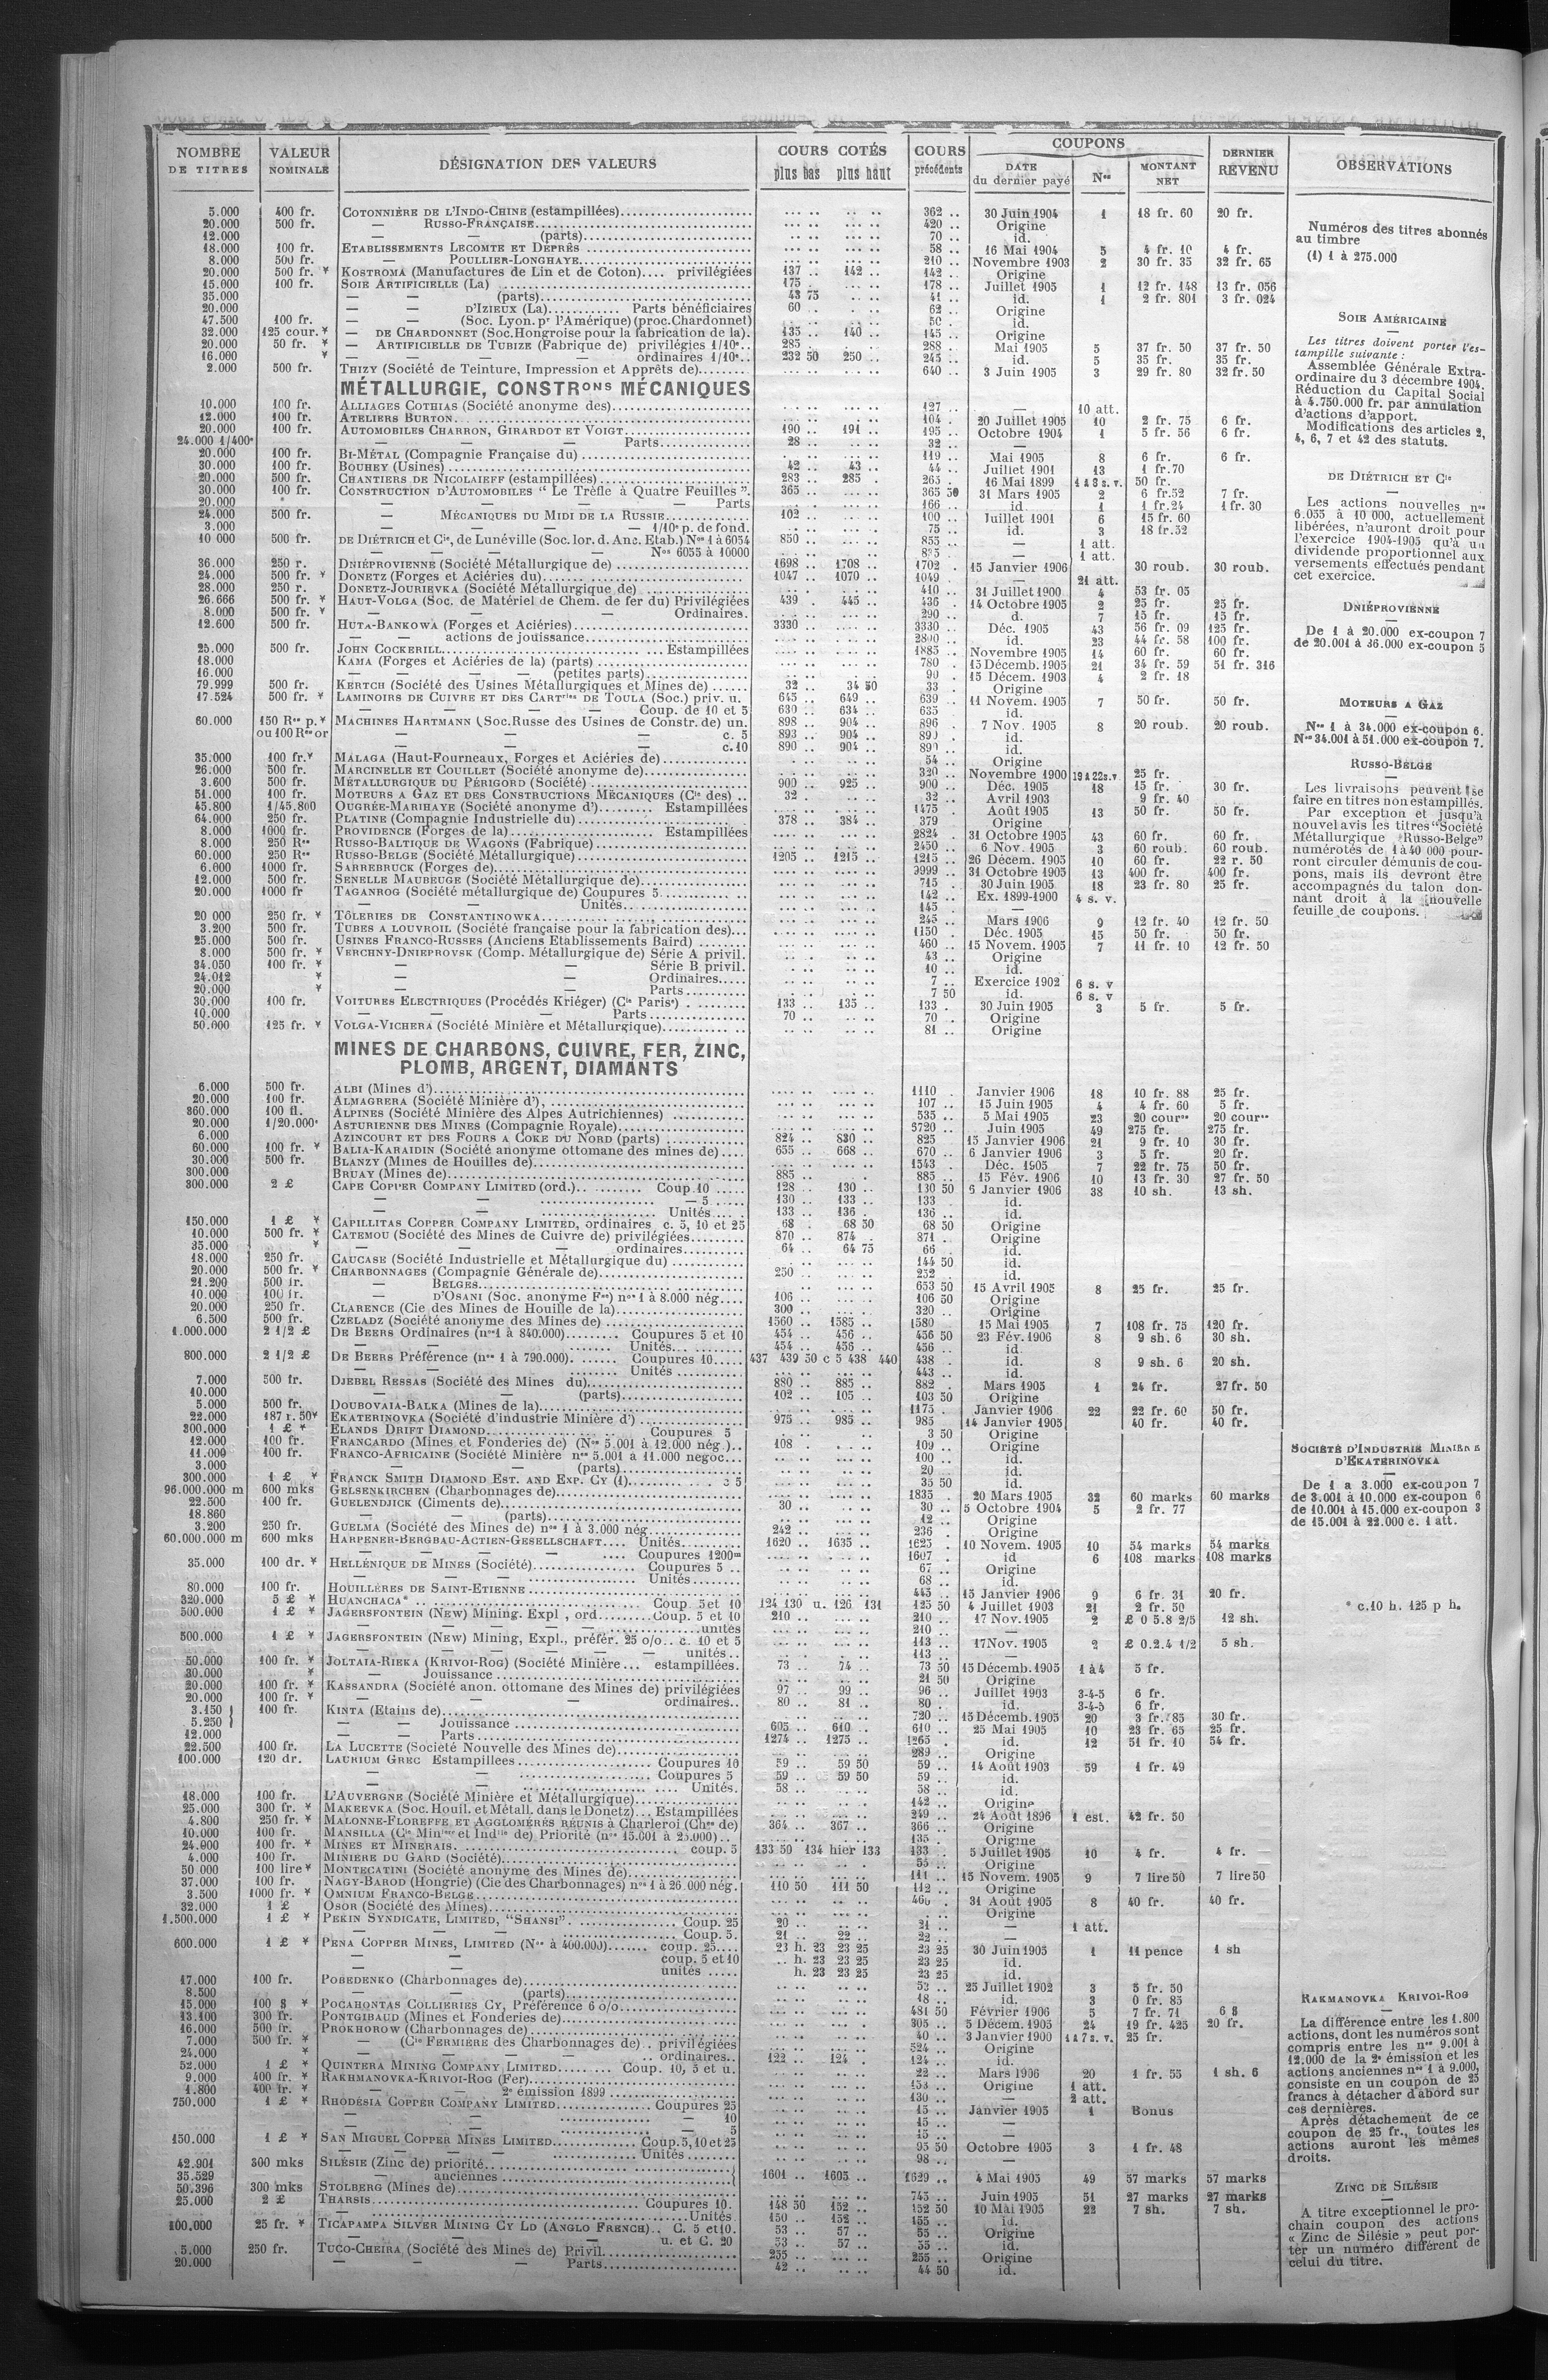 NOMBRE DE TITRES | VALEUR NOMINALE | DÉSIGNATION DES VALEURS | COURS COTÉS plus bas plus haut | COURS précédents | COUPONS DATE du dernier payé Nos MONTANT NET | DERNIER REVENU | OBSERVATIONS
5.000 400 fr. COTONNIÈRE DE L'INDO-CHINE (estampillées) 362 .. 30 Juin 1904 1 18 fr. 60 20 fr.
20.000 500 fr. — RUSSO-FRANÇAISE 420 .. Origine
12.000 — — (parts) 70 .. id.
18.000 100 fr. ETABLISSEMENTS LECOMTE ET DEPRÈS 58 .. 16 Mai 1904 5 4 fr. 10 4 fr.
8.000 500 fr. — POULLIER-LONGHAYE 210 .. Novembre 1903 2 30 fr. 35 32 fr. 65
20.000 500 fr. * KOSTROMA (Manufactures de Lin et de Coton).... privilégiées 137 .. 142 .. 142 .. Origine
15.000 100 fr. SOIE ARTIFICIELLE (La) 175 . 178 .. Juillet 1905 1 12 fr. 148 13 fr. 056
35.000 — — (parts) 43 75 41 .. id. 1 2 fr. 801 3 fr. 024
20.000 — — D'IZIEUX (La) Parts bénéficiaires 60 . 62 .. Origine
47.500 100 fr. — — (Soc. Lyon. pr l'Amérique) (proc. Chardonnet) 50 . id.
32.000 125 cour. * — DE CHARDONNET (Soc. Hongroise pour la fabrication de la). 135 .. 140 .. 145 .. Origine
20.000 50 fr. * — ARTIFICIELLE DE TUBIZE (Fabrique de) privilégies 1/10e.. 285 . 288 . Mai 1905 5 37 fr. 50 37 fr. 50
16.000 * — — — — ordinaires 1/10e.. 232 50 250 .. 245 .. id. 5 35 fr. 35 fr.
2.000 500 fr. THIZY (Société de Teinture, Impression et Apprêts de) 640 .. 3 Juin 1905 3 29 fr. 80 32 fr. 50
MÉTALLURGIE, CONSTRons MÉCANIQUES
10.000 100 fr. ALLIAGES COTHIAS (Société anonyme des) 127 .. — 10 att.
12.000 100 fr. ATELIERS BURTON 104 . 20 Juillet 1905 10 2 fr. 75 6 fr.
20.000 100 fr. AUTOMOBILES CHARRON, GIRARDOT ET VOIGT 190 .. 191 .. 195 .. Octobre 1904 1 5 fr. 56 6 fr.
24.000 1/400e — — — Parts 28 .. 32 .. —
20.000 100 fr. BI-MÉTAL (Compagnie Française du) 119 .. Mai 1905 8 6 fr. 6 fr.
30.000 100 fr. BOUHEY (Usines) 42 .. 43 .. 44 .. Juillet 1901 13 1 fr. 70
20.000 500 fr. CHANTIERS DE NICOLAIEFF (estampillées) 283 .. 285 . 265 . 16 Mai 1899 1 à 3 s. v. 50 fr.
30.000 100 fr. CONSTRUCTION D'AUTOMOBILES “ Le Trèfle à Quatre Feuilles ”. 365 .. 365 50 31 Mars 1905 2 6 fr. 52 7 fr.
20.000 — — — Parts 166 .. id. 1 1 fr. 24 1 fr. 30
24.000 500 fr. — MÉCANIQUES DU MIDI DE LA RUSSIE 102 .. 100 .. Juillet 1901 6 15 fr. 60
3.000 — — — — 1/10e p. de fond. 75 .. id. 3 18 fr. 52
10 000 500 fr. DE DIÉTRICH et Cie, de Lunéville (Soc. lor. d. Anc. Etab.) Nos 1 à 6054 850 .. 855 .. — 1 att.
— — — — Nos 6055 à 10000 — 1 att.
36.000 250 r. DNIÉPROVIENNE (Société Métallurgique de) 1698 .. 1708 .. 1702 . 15 Janvier 1906 30 roub. 30 roub.
24.000 500 fr. * DONETZ (Forges et Aciéries du) 1047 .. 1070 .. 1049 . — 21 att.
28.000 250 r. DONETZ-JOURIEVKA (Société Métallurgique de) 410 .. 31 Juillet 1900 4 53 fr. 05
26.666 500 fr. * HAUT-VOLGA (Soc. de Matériel de Chem. de fer du) Privilégiées 439 . 445 .. 436 . 14 Octobre 1905 2 25 fr. 25 fr.
8.000 500 fr. * — — — Ordinaires. 290 .. d. 7 15 fr. 15 fr.
12.600 500 fr. HUTA-BANKOWA (Forges et Aciéries) 3330 .. 3330 .. Déc. 1905 43 56 fr. 09 125 fr.
— — actions de jouissance 2800 .. id. 23 44 fr. 58 100 fr.
25.000 500 fr. JOHN COCKERILL Estampillées 1885 .. Novembre 1905 14 60 fr. 60 fr.
18.000 KAMA (Forges et Aciéries de la) (parts) 780 . 15 Décemb. 1905 21 34 fr. 59 51 fr. 316
16.000 — — (petites parts) 90 . 15 Décem. 1903 4 2 fr. 18
79.999 500 fr. KERTCH (Société des Usines Métallurgiques et Mines de) 32 .. 34 50 33 . Origine
17.524 500 fr. * LAMINOIRS DE CUIVRE ET DES CARTches DE TOULA (Soc.) priv. u. 645 .. 649 .. 639 .. 11 Novem. 1905 7 50 fr. 50 fr.
— — — Coup. de 10 et 5 630 .. 634 .. 635 .. id.
60.000 150 Res p. * MACHINES HARTMANN (Soc. Russe des Usines de Constr. de) un. 898 .. 904 .. 896 . 7 Nov. 1905 8 20 roub. 20 roub.
ou 100 Res or — — — c. 5 893 .. 904 .. id.
— — — c. 10 890 .. 904 .. id.
35.000 100 fr. * MALAGA (Haut-Fourneaux, Forges et Aciéries de) 54 .. Origine
26.000 500 fr. MARCINELLE ET COUILLET (Société anonyme de) 320 .. Novembre 1900 19 à 22 s. v. 25 fr.
3.600 500 fr. MÉTALLURGIQUE DU PÉRIGORD (Société) 900 .. 925 .. 900 .. Déc. 1905 18 15 fr. 30 fr.
51.000 100 fr. MOTEURS A GAZ ET DES CONSTRUCTIONS MÉCANIQUES (Cie des) .. 32 . 32 .. Avril 1903 9 fr. 40
45.800 1/45.800 OUGRÉE-MARIHAYE (Société anonyme d') Estampillées 1475 .. Août 1905 13 50 fr. 50 fr.
64.000 250 fr. PLATINE (Compagnie Industrielle du) 378 .. 384 .. 379 Origine
8.000 1000 fr. PROVIDENCE (Forges de la) Estampillées 2824 . 31 Octobre 1905 43 60 fr. 60 fr.
8.000 250 Res RUSSO-BALTIQUE DE WAGONS (Fabrique) 2450 .. 6 Nov. 1905 3 60 roub. 60 roub.
60.000 250 Res RUSSO-BELGE (Société Métallurgique) 1205 .. 1215 .. 1215 .. 26 Décem. 1905 10 60 fr. 22 r. 50
6.000 1000 fr. SARREBRUCK (Forges de) 9999 .. 31 Octobre 1905 13 400 fr. 400 fr.
12.000 500 fr. SENELLE MAUBEUGE (Société Métallurgique de) 715 . 30 Juin 1905 18 23 fr. 80 25 fr.
20.000 1000 fr TAGANROG (Société métallurgique de) Coupures 5 142 .. Ex. 1899-1900 4 s. v.
— — Unités 145 .
20 000 250 fr. * TÔLERIES DE CONSTANTINOWKA 245 .. Mars 1906 9 12 fr. 40 12 fr. 50
3.200 500 fr. TUBES A LOUVROIL (Société française pour la fabrication des) 1150 . Déc. 1905 15 50 fr. 50 fr.
25.000 500 fr. USINES FRANCO-RUSSES (Anciens Etablissements Baird) 460 .. 15 Novem. 1905 7 11 fr. 10 12 fr. 50
8.000 500 fr. * VERCHNY-DNIEPROVSK (Comp. Métallurgique de) Série A privil. 43 .. Origine
34.050 100 fr. * — — Série B privil. 10 .. id.
24.012 * — — Ordinaires 7 .. Exercice 1902 6 s. v
20.000 * — — Parts 7 50 id. 6 s. v
30.000 100 fr. VOITURES ELECTRIQUES (Procédés Kriéger) (Cie Parise) 133 .. 135 .. 133 . 30 Juin 1905 3 5 fr. 5 fr.
10.000 — — — Parts 70 .. 70 . Origine
50.000 125 fr. * VOLGA-VICHERA (Société Minière et Métallurgique) 81 .. Origine
MINES DE CHARBONS, CUIVRE, FER, ZINC,
PLOMB, ARGENT, DIAMANTS
6.000 500 fr. ALBI (Mines d') 1110 . Janvier 1906 18 10 fr. 88 25 fr.
20.000 100 fr. ALMAGRERA (Société Minière d') 107 .. 15 Juin 1905 4 4 fr. 60 5 fr.
360.000 100 fl. ALPINES (Société Minière des Alpes Autrichiennes) 535 .. 5 Mai 1905 23 20 cour. 20 cour.
20.000 1/20.000e ASTURIENNE DES MINES (Compagnie Royale) 5720 .. Juin 1905 49 275 fr. 275 fr.
6.000 AZINCOURT ET DES FOURS A COKE DU NORD (parts) 824 .. 830 .. 825 15 Janvier 1906 21 9 fr. 10 30 fr.
60.000 100 fr. * BALIA-KARAIDIN (Société anonyme ottomane des mines de) 655 .. 668 .. 670 .. 6 Janvier 1906 3 5 fr. 20 fr.
30.000 500 fr. BLANZY (Mines de Houilles de) 1543 . Déc. 1905 7 22 fr. 75 50 fr.
300.000 BRUAY (Mines de) 885 .. 885 .. 15 Fév. 1906 10 13 fr. 30 27 fr. 50
300.000 2 £ CAPE COPPER COMPANY LIMITED (ord.) Coup. 10 128 .. 130 .. 130 50 6 Janvier 1906 38 10 sh. 13 sh.
— — — 5 130 .. 133 .. 133 . id.
— — Unités 133 .. 136 . 136 .. id.
150.000 1 £ * CAPILLITAS COPPER COMPANY LIMITED, ordinaires c. 5, 10 et 25 68 . 68 50 68 50 Origine
10.000 500 fr. * CATEMOU (Société des Mines de Cuivre de) privilégiées 870 .. 874 . 871 . Origine
35.000 * — — — ordinaires 64 .. 64 75 66 . id.
18.000 250 fr. CAUCASE (Société Industrielle et Métallurgique du) 144 50 id.
20.000 500 fr. * CHARBONNAGES (Compagnie Générale de) 250 .. 252 . id.
21.200 500 fr. — BELGES 653 50 15 Avril 1905 8 25 fr. 25 fr.
10.000 100 fr. — D'OSANI (Soc. anonyme Fse) nos 1 à 8.000 nég 106 .. 106 50 Origine
20.000 250 fr. CLARENCE (Cie des Mines de Houille de la) 300 .. 320 .. Origine
6.500 500 fr. CZELADZ (Société anonyme des Mines de) 1560 .. 1585 .. 1580 15 Mai 1905 7 108 fr. 75 120 fr.
1.000.000 2 1/2 £ DE BEERS Ordinaires (nos 1 à 840.000) Coupures 5 et 10 454 .. 456 .. 456 50 23 Fév. 1906 8 9 sh. 6 30 sh.
— — Unités 454 .. 456 .. 456 .. id.
800.000 2 1/2 £ DE BEERS Préférence (nos 1 à 790.000). Coupures 10 437 439 50 c 5 438 440 438 . id. 8 9 sh. 6 20 sh.
— — Unités 443 .. id.
7.000 500 fr. DJEBEL RESSAS (Société des Mines du) 880 .. 885 .. 882 . Mars 1905 1 24 fr. 27 fr. 50
10.000 — — (parts) 102 .. 105 .. 103 50 Origine
5.000 500 fr. DOUBOVAIA-BALKA (Mines de la) 1175 . Janvier 1906 22 22 fr. 60 50 fr.
22.000 187 r. 50 * EKATERINOVKA (Société d'industrie Minière d') 975 .. 985 .. 985 14 Janvier 1905 40 fr. 40 fr.
300.000 1 £ * ELANDS DRIFT DIAMOND Coupures 5 3 50 Origine
12.000 100 fr. FRANCARDO (Mines et Fonderies de) (Nos 5.001 à 12.000 nég.) 108 . 109 .. Origine
11.000 100 fr. FRANCO-AFRICAINE (Société Minière nos 5.001 à 11.000 negoc 100 .. id.
3.000 — — (parts) 20 .. id.
300.000 1 £ * FRANCK SMITH DIAMOND EST. AND EXP. CY (1) c 5 35 50 id.
96.000.000 m 600 mks GELSENKIRCHEN (Charbonnages de) 1835 . 20 Mars 1905 32 60 marks 60 marks
22.500 100 fr. GUELENDJICK (Ciments de) 30 .. 30 .. 5 Octobre 1904 5 2 fr. 77
18.860 — — (parts) 12 .. Origine
3.200 250 fr. GUELMA (Société des Mines de) nos 1 à 3.000 nég 242 .. 236 . Origine
60.000.000 m 600 mks HARPENER-BERGBAU-ACTIEN-GESELLSCHAFT Unités 1620 .. 1635 .. 1625 . 10 Novem. 1905 10 54 marks 54 marks
— — — Coupures 1200m 1607 . id 6 108 marks 108 marks
35.000 100 dr. * HELLÉNIQUE DE MINES (Société) Coupures 5 67 .. Origine
— — Unités 68 .. id.
80.000 100 fr. HOUILLÈRES DE SAINT-ETIENNE 445 .. 15 Janvier 1906 9 6 fr. 31 20 fr.
320.000 5 £ * HUANCHACA* Coup. 5 et 10 124 130 u. 126 131 125 50 4 Juillet 1903 21 2 fr. 50
500.000 1 £ * JAGERSFONTEIN (NEW) Mining. Expl , ord Coup. 5 et 10 210 .. 210 .. 17 Nov. 1905 2 £ 0 5.8 2/5 12 sh.
— — — unités 210 .. —
500.000 1 £ * JAGERSFONTEIN (NEW) Mining, Expl., préfér. 25 o/o.. c. 10 et 5 113 .. 17 Nov. 1905 2 £ 0.2.4 1/2 5 sh.
— — — unités 113 .. —
50.000 100 fr. * JOLTAIA-RIEKA (KRIVOI-ROG) (Société Minière estampillées. 73 .. 74 .. 73 50 15 Décemb. 1905 1 à 4 5 fr.
30.000 * — Jouissance 21 50 Origine
20.000 100 fr. * KASSANDRA (Société anon. ottomane des Mines de) privilégiées 97 .. 99 .. 96 .. Juillet 1903 3-4-5 6 fr.
20.000 100 fr. * — — — ordinaires 80 .. 81 .. 80 . id. 3-4-5 6 fr.
3.150 } 100 fr. KINTA (Etains de) 720 .. 15 Décemb. 1905 20 3 fr. 85 30 fr.
5.250 } — — Jouissance 605 .. 610 .. 610 .. 25 Mai 1905 10 23 fr. 65 25 fr.
12.000 — — Parts 1274 .. 1275 .. 1265 . id. 12 51 fr. 10 54 fr.
22.500 100 fr. LA LUCETTE (Société Nouvelle des Mines de) 289 .. Origine
100.000 120 dr. LAURIUM GREC Estampillées Coupures 10 59 .. 59 50 59 .. 14 Août 1903 59 1 fr. 49
— — Coupures 5 59 .. 59 50 59 .. id.
— — Unités. 58 .. 58 .. id.
18.000 100 fr. L'AUVERGNE (Société Minière et Métallurgique) 142 .. Origine
25.000 300 fr. * MAKEEVKA (Soc. Houil. et Métall. dans le Donetz) Estampillées 249 .. 24 Août 1896 1 est. 42 fr. 50
4.800 250 fr. * MALONNE-FLOREFFE ET AGGLOMÉRÉS RÉUNIS à Charleroi (Chges de) 364 .. 367 .. 366 .. Origine
10.000 100 fr. MANSILLA (Cie Minière et Indlle de) Priorité (nos 15.001 à 25.000) 135 . Origine
24.000 100 fr. * MINES ET MINERAIS coup. 5 133 50 134 hier 133 133 .. 5 Juillet 1905 10 4 fr. 4 fr.
4.000 100 fr. MINIERE DU GARD (Société) 55 .. Origine
50 000 100 lire * MONTECATINI (Société anonyme des Mines de) 111 .. 15 Novem. 1905 9 7 lire 50 7 lire 50
37.000 100 fr. NAGY-BAROD (Hongrie) (Cie des Charbonnages) nos 1 à 26.000 nég. 110 50 111 50 112 .. Origine
3.500 1000 fr. * OMNIUM FRANCO-BELGE 31 Août 1905 8 40 fr. 40 fr.
32.000 1 £ OSOR (Société des Mines) Origine
1.500.000 1 £ * PEKIN SYNDICATE, LIMITED, “SHANSI” Coup. 25 20 .. 21 .. — 1 att.
— — Coup. 5. 21 .. 22 .. 22 .. —
600.000 1 £ * PENA COPPER MINES, LIMITED (Nos à 400.000) coup. 25 23 h. 23 23 25 23 25 30 Juin 1905 1 11 pence 1 sh
— — coup. 5 et 10 .. h. 23 23 25 23 25 id.
— — unités h. 23 23 25 23 25 id.
17.000 100 fr. POBEDENKO (Charbonnages de) 53 .. 25 Juillet 1902 3 5 fr. 50
8.500 — — (parts) 18 .. id. 3 0 fr. 85
15.000 100 $ * POCAHONTAS COLLIERIES CY, Préférence 6 o/o 481 50 Février 1906 5 7 fr. 71 6 $
13.100 300 fr. PONTGIBAUD (Mines et Fonderies de) 305 .. 5 Décem. 1905 24 19 fr. 425 20 fr.
16.000 500 fr. PROKHOROW (Charbonnages de) 40 .. 3 Janvier 1900 1 à 7 s. v. 25 fr.
7.000 500 fr. * — (Cie FERMIÈRE des Charbonnages de) privilégiées 524 .. Origine
24.000 * — — — ordinaires 122 .. 124 . 124 .. id.
52.000 1 £ * QUINTERA MINING COMPANY LIMITED Coup. 10, 5 et u. 22 .. Mars 1906 20 1 fr. 55 1 sh. 6
9.000 400 fr. * RAKHMANOVKA-KRIVOI-ROG (Fer) 153 .. Origine 1 att.
1.800 400 fr. * — — 2e émission 1899 130 .. — 2 att.
750.000 1 £ * RHODÉSIA COPPER COMPANY LIMITED Coupures 25 15 .. Janvier 1905 1 Bonus
— — — 10 15 .. —
— — — 5 15 .. —
150.000 1 £ * SAN MIGUEL COPPER MINES LIMITED Coup. 5, 10 et 25 95 50 Octobre 1905 3 1 fr. 48
— — Unités 98 .. —
42.901 300 mks SILÉSIE (Zinc de) priorité
35.529 — anciennes 1601 .. 1605 .. 1629 .. 4 Mai 1905 49 57 marks 57 marks
50.396 300 mks STOLBERG (Mines de) 745 .. Juin 1905 51 27 marks 27 marks
25.000 2 £ THARSIS Coupures 10. 148 50 152 .. 152 50 10 Mai 1905 22 7 sh. 7 sh.
— Unités 150 .. 152 .. 155 .. id.
100.000 25 fr. * TICAPAMPA SILVER MINING CY LD (ANGLO FRENCH) C. 5 et 10. 53 .. 57 .. 55 .. Origine
— u. et C. 20 53 .. 57 .. 55 .. id.
5.000 250 fr. TUCO-CHEIRA (Société des Mines de) Privil. 255 .. 255 .. Origine
20.000 — — — Parts 42 .. 44 50 id.
Numéros des titres abonnés
au timbre
(1) 1 à 275.000
SOIE AMÉRICAINE
Les titres doivent porter l'es-
tampille suivante :
Assemblée Générale Extra-
ordinaire du 3 décembre 1904.
Réduction du Capital Social
à 4.750.000 fr. par annulation
d'actions d'apport.
Modifications des articles 2,
4, 6, 7 et 42 des statuts.
DE DIÉTRICH ET Cie
Les actions nouvelles nos
6.055 à 10 000, actuellement
libérées, n'auront droit pour
l'exercice 1904-1905 qu'à un
dividende proportionnel aux
versements effectués pendant
cet exercice.
DNIÉPROVIENNE
De 1 à 20.000 ex-coupon 7
de 20.001 à 36.000 ex-coupon 5
MOTEURS A GAZ
Nos 1 à 34.000 ex-coupon 6.
Nos 34.001 à 51.000 ex-coupon 7.
RUSSO-BELGE
Les livraisons peuvent se
faire en titres non estampillés.
Par exception et jusqu'à
nouvel avis les titres “Société
Métallurgique Russo-Belge”
numérotés de 1 à 40 000 pour-
ront circuler démunis de cou-
pons, mais ils devront être
accompagnés du talon don-
nant droit à la nouvelle
feuille de coupons.
SOCIÉTÉ D'INDUSTRIE MINIÈRE
D'EKATERINOVKA
De 1 a 3.000 ex-coupon 7
de 3.001 à 10.000 ex-coupon 6
de 10.001 à 15.000 ex-coupon 3
de 15.001 à 22.000 c. 1 att.
* c.10 h. 125 p h.
RAKMANOVKA KRIVOI-ROG
La différence entre les 1.800
actions, dont les numéros sont
compris entre les nos 9.001 à
12.000 de la 2e émission et les
actions anciennes nos 1 à 9.000,
consiste en un coupon de 25
francs à détacher d'abord sur
ces dernières.
Après détachement de ce
coupon de 25 fr., toutes les
actions auront les mêmes
droits.
ZINC DE SILÉSIE
A titre exceptionnel le pro-
chain coupon des actions
« Zinc de Silésie » peut por-
ter un numéro différent de
celui du titre.